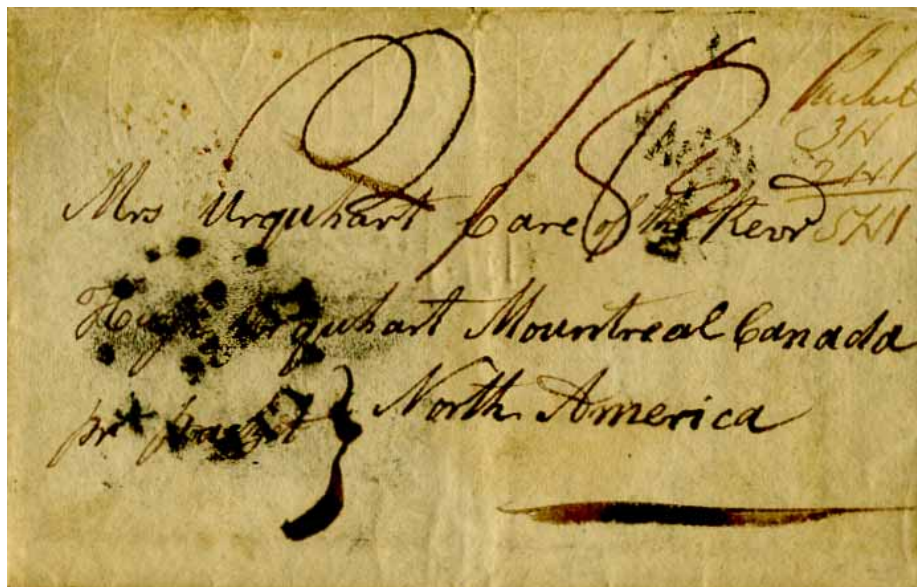 2/8
Packet
3N
2N1
5N1
Mrs Urquhart Care of the Revr
Hugh Urquhart Mountreal Canada
pr packet } North America